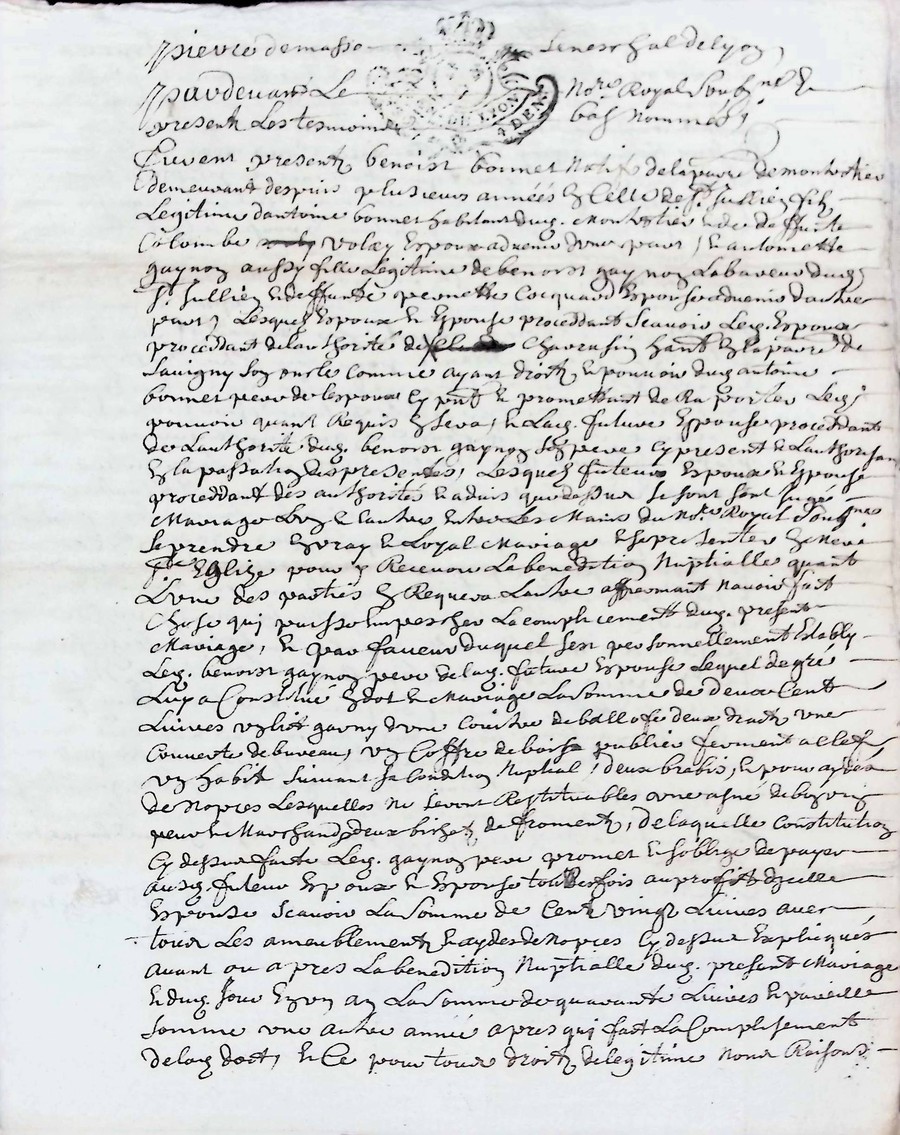 Pierre demasso Seneschal de Lyon,
Pardevant Le Nore Royal Soubsné &
present Les tesmoins bas Nommés
furent presentz benoist bonnet Natif de la parre de
demeurant despuis plusieurs années En Celle de St Jullien filz
Legitime d'antoine bonnet habitant dud. & de deffunte
Colombe Espoux advenir d'une part, Et antoinette
gaynon aussy fille Legitime de benoist gaynon Laboureur dud.
St Jullien & deffunte pernette Cocquard Espouse advenir d'autre
part, Lesquelz Espoux Et Espouse proceddant Scavoir Led. Espoux
proceddant de lauthorité de habt En la parre de
Savigny Son oncle Comme ayant droit & pouvoir dud. antoine
bonnet pere de lespoux Cy & promettant de Raporter Led.
pouvoir quant Requis En Sera, Et Lad. future Espouse proceddant
de Lauthorité dud. benoist gaynon Son pere Cy present & Lauthorisant
En la passation des presentes, Lesquelz futeurs Espoux Et Espouse
proceddant des authorités Et advis que dessus Se sont
Mariage Lun & Lautre Entre Les Mains du Nore Royal Soubsné
Se prendre En vray & Loyal Mariage & Se presenter En
Ste Eglize pour y Recevoir La benediction Nuptialle quant
Lune des parties En Requera Lautre affirmant Navoir fait
Chose quy puisse Empescher La complissement dud. present
Mariage, Et par faveur duquel Sest personnellement Estably
Led. benoist gaynon pere de lad. future Espouse Lequel de gré
Luy a Constitué En dot & Mariage La Somme de deux Cent
Livres un lit garny d'une Coitre de balloffe deux draptz une
Couverte de bureau, un Coffre de bois fermant a Clef
un habit Suivant Sa Condition Nuptial, deux brebis, Et pour aydes
de Nopces Lesquelles Ne Seront Restituables une asnée de bon vin
pur & Marchand deux bichetz de froment, de laquelle Constitution
Cy dessus faite Led. gaynon pere promet & Soblige de payer
ausd. futeurs Espoux & Espouse toutesfois au profit d'icelle
Espouse Scavoir La Somme de Cent vingt Livres avec
tous Les ameublementz & aydes de Nopces Cy dessus Expliqués
avant ou apres La benediction Nuptialle dud. present Mariage
Et dud. Jour En un an La Somme de quarante Livres Et pareille
Somme une autre année apres quy fait La Complissement
de lad. dot, Et Ce pour tous droitz de legitime Nom Raisons